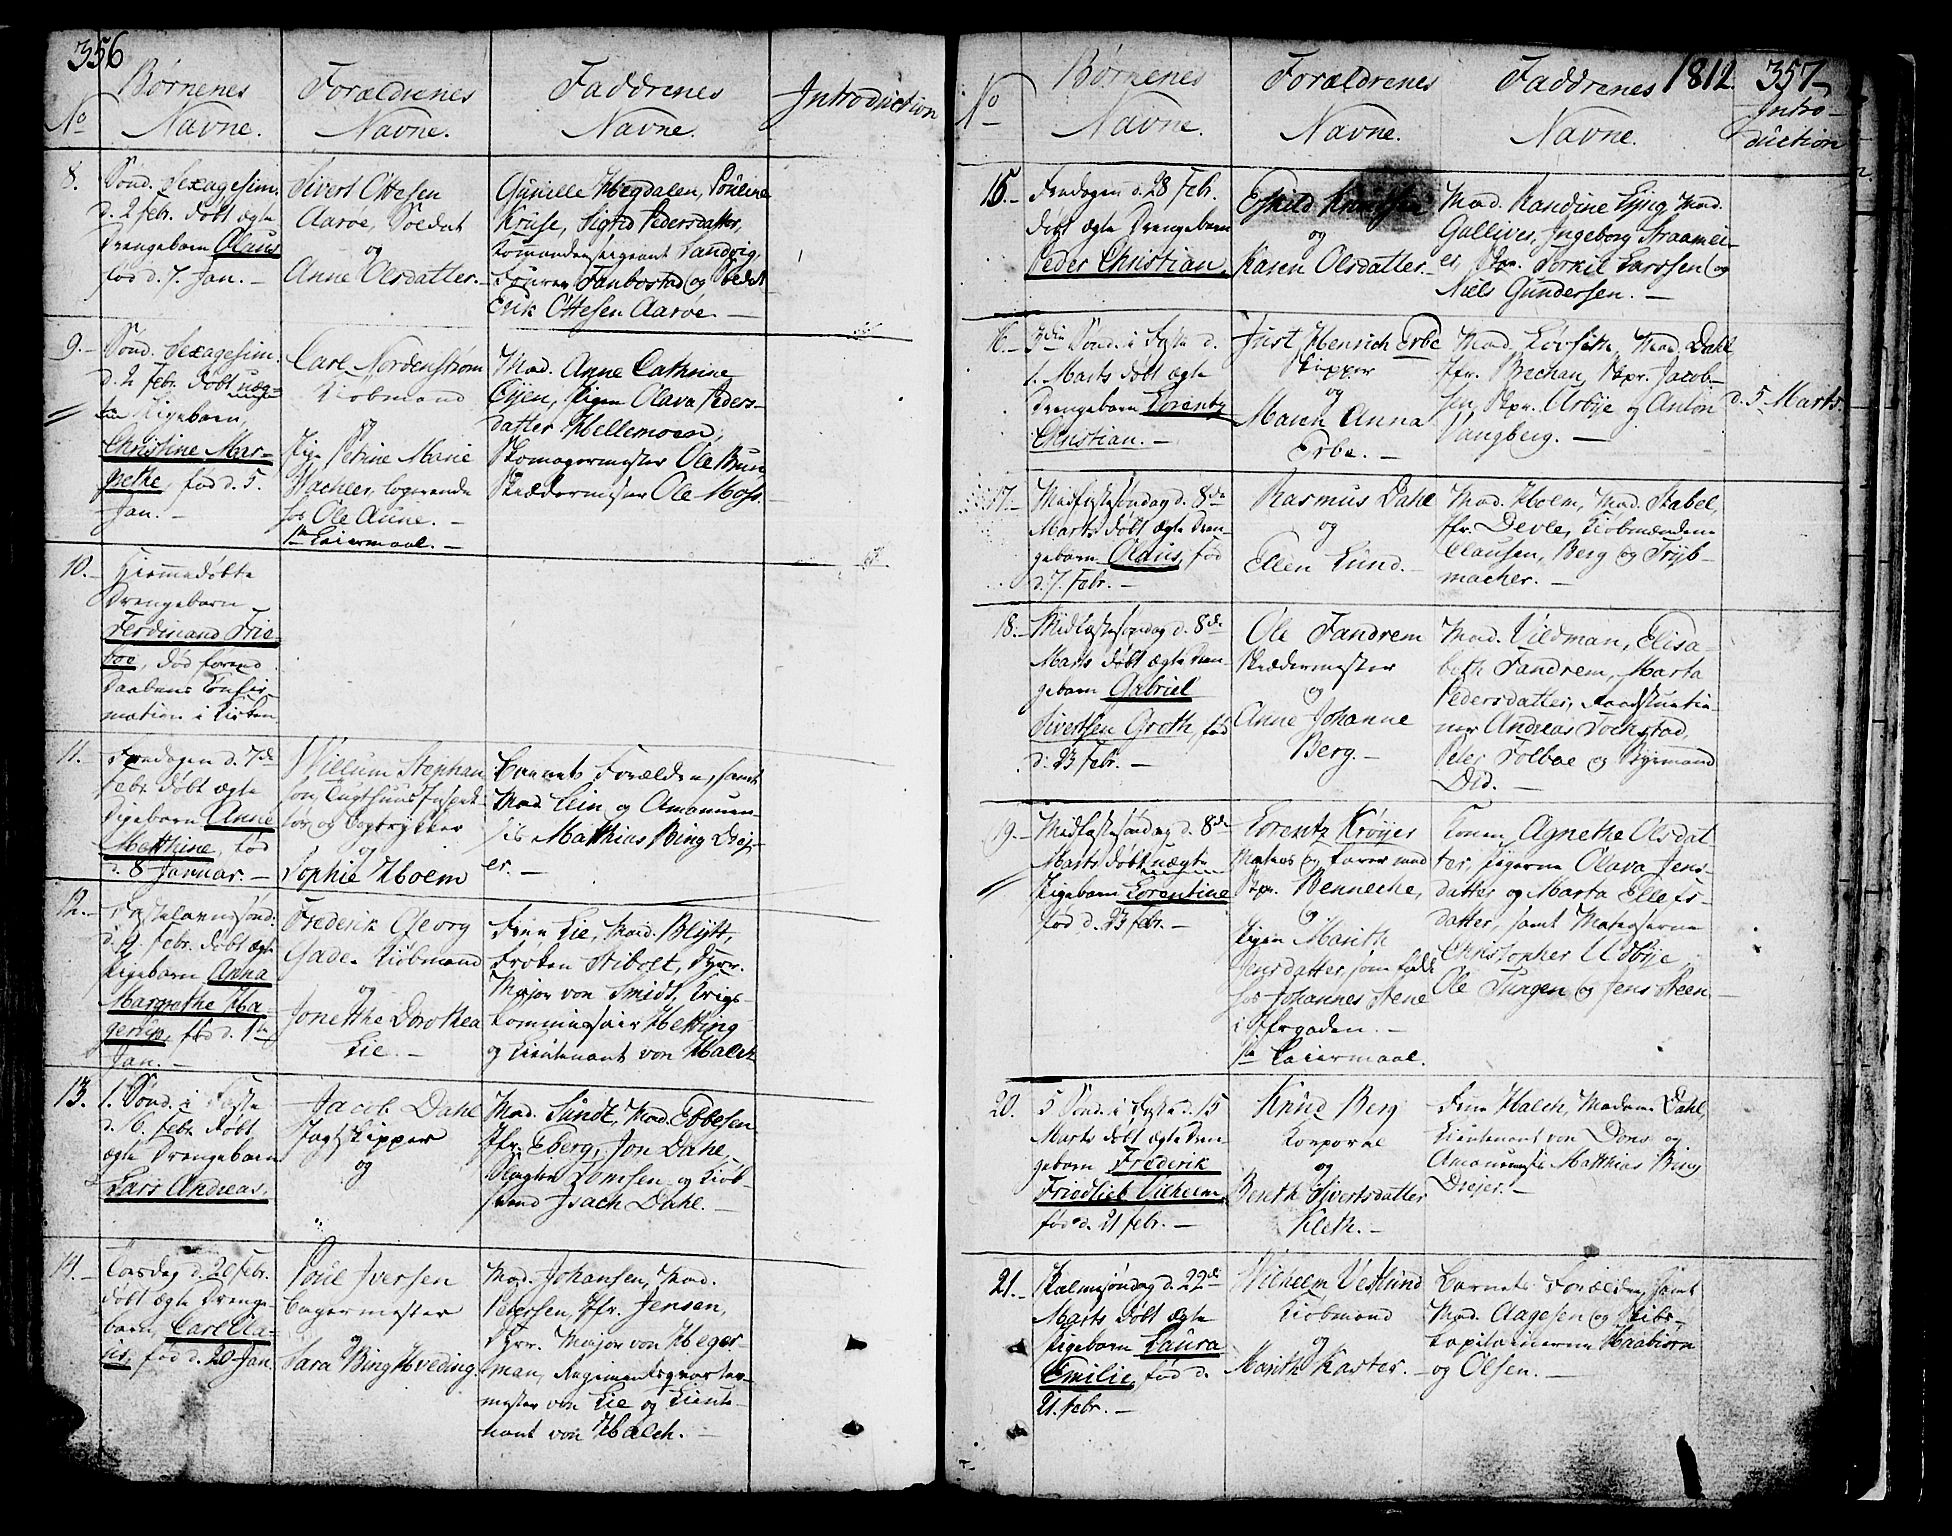 356
No
Børnenes
Navne.
Forældrenes
Navne.
Faddrenes
Navne.
Introduction
8.
Sönd. Sexagesim.
d. 2 Febr. döbt ægte
Drengebarn Olaus
fød d. 7. Jan. —
Sivert Ottesen
Aaroe, Soldat
og
Anne Olsdatter. —
Gunille Hegdalen, Pouline
Kruse, Sigrid Pedersdatter,
Sandvig,
og Soldat
Erik Ottesen Aaröe. —
9. —
Sönd. Sexagesim.
d. 2 Febr. döbt uæg-
te Pigebarn,
Christine Mar-
grethe, fød d. 5.
Jan. —
Carl Nordenström
Kiöbmand
og
Pige Petrine Marie
Wachler, logerende
hos Ole Aune. —
1ste Leiermaal. —
Mad. Anne Cathrine
Eyen, Pigen Olava Peders-
datter Hellemoen,
Skomagermester Ole Bun
Skræddermester Ole Moss.
10. —
Hiemmedöbte
Drengebarn
Ferdinand Frie-
boe, död förend
Daabens Confir-
mation i Kirken
11. —
Fredagen d. 7de
Febr. döbt ægte
Pigebarn Anne
Methine, fød
d. 8 Januar. —
Willum Stephan
son, Tugthuus Inspek-
tör og Bogtrykker
og
Sophie Hoem
Barnets Forældre, samt
Mad. Lein og Amanuen-
sis Matthias Bing Drej-
er. —
12. —
Fastelavnssönd.
d. 9. Febr. döbt ægte
Pigebarn Anna
Margrethe Ha-
gerup, fød d. 1ste
Jan. —
Frederik Georg
Gade. Kiöbmand
og
Jonetthe Dorothea
Lie. —
Frue Lie, Mad. Blÿtt,
Fröken Stibolt, Herr.
Major von Smidt, Krigs-
kommissair Hetting
og Lieutenant von Halch
13.
1. Sönd. i Faste
d. 16. Febr. döbt
ægte Drengebarn
Lars Andreas.
Jacob Dahl
Jagtskipper
og
Mad. Sundt, Mad. Ebbesen
Jfr. Eberg, Jon Dahl,
og Kiöb-
mand Isach Dahl. —
14. —
Torsdag d. 20 Febr.
döbt ægte Drenge-
barn, Carl
fød d. 20 Jan.
Poul Iversen
Bagermester
og
Sara Bing Hveding.
Mad. Johansen, Mad.
Petersen, Jfr. Jensen,
Herr. Major von Heger-
man, Regimentsqvarteer-
mester von Lie og Lieute-
nant von Halch. —
1812. 357
No
Børnenes
Navne.
Forældrenes
Navne.
Faddrenes
Navne.
Intro-
duction
15. —
Fredagen d. 28 Febr.
döbt ægte Drengebarn
Peder Christian.
Eskild Knudsen
og
Karen Olsdatter. —
Mad. Randine Lÿng, Mad.
Galliver, Ingeborg Straamei-
er, Torkil Larssen og
Niels Gundersen. —
16. —
3die Sönd. i Faste d.
1. Marts döbt ægte
Drengebarn Lorentz
Christian. —
Just Henrich Erbe
Skipper
og
Maren Anna
Erbe. —
Mad. Lövseth, Mad. Dahl,
Jfr. Brechan, Skpr. Jacob-
sen, Skpr. Urbÿe og Anton
Vangberg. —
d. 5 Marts.
17. —
Midfastesöndag d. 8de
Marts döbt ægte Dren-
gebarn Olaus, fød
d. 7. Febr. —
Rasmus Dahl
og
Ellen Lund. —
Mad. Holm, Mad. Stabel,
Jfr. Devle, Kiöbmændene
Clausen, Berg og Trÿb-
macher. —
18. —
Midfastesöndag d. 8de
Marts döbt ægte Dren-
gebarn Gabriel
Sivertsen Groth, fød
d. 23 Febr. —
Ole Fandrem
Skræddermester
og
Anne Johanne
Berg. —
Mad. Vildman, Elisa-
beth Fandrem, Marta
Pedersdatter,
Andreas
Peter Tolboe og Bÿemand
Did. —
19. —
Midfastesöndag d. 8de
Marts döbt uægte
Pigebarn Lorentine
fød d. 23 Febr. —
Lorentz Kröÿer
Matros og farer med
Skpr. Benneche,
og
Pigen Marith
Jensdatter, som
hos Johannes Stene
i
1ste Leiermaal.
Konen Agnethe Olsdat-
ter, Pigerne Olava Jens-
datter og Marta Ellefs-
datter, samt Matroserne
Christopher Udbÿe,
Ole Tungen og Jens Steen
20.
5 Sönd. i Faste d. 15
Marts döbt ægte Dren-
gebarn Frederik
Friedlieb Vilhelm,
fød d. 21 Febr. —
Knud Berg
Korporal
og
Bereth Sivertsdatter
Kleth. —
Frue Halch, Madam Dahl,
Lieutenant von Dons og
Amanuensis Matthias Bing
Drejer. —
21. —
Palmesöndag d. 22de
Marts döbt ægte
Pigebarn Laura
Emilie, fød d.
21. Febr. —
Wilhelm Veslund
Kiöbmand
og
Marith Karter. —
Barnets Forældre, samt
Mad. Aagesen og Skibs-
kapitainerne Haabiörn
og Olsen. —